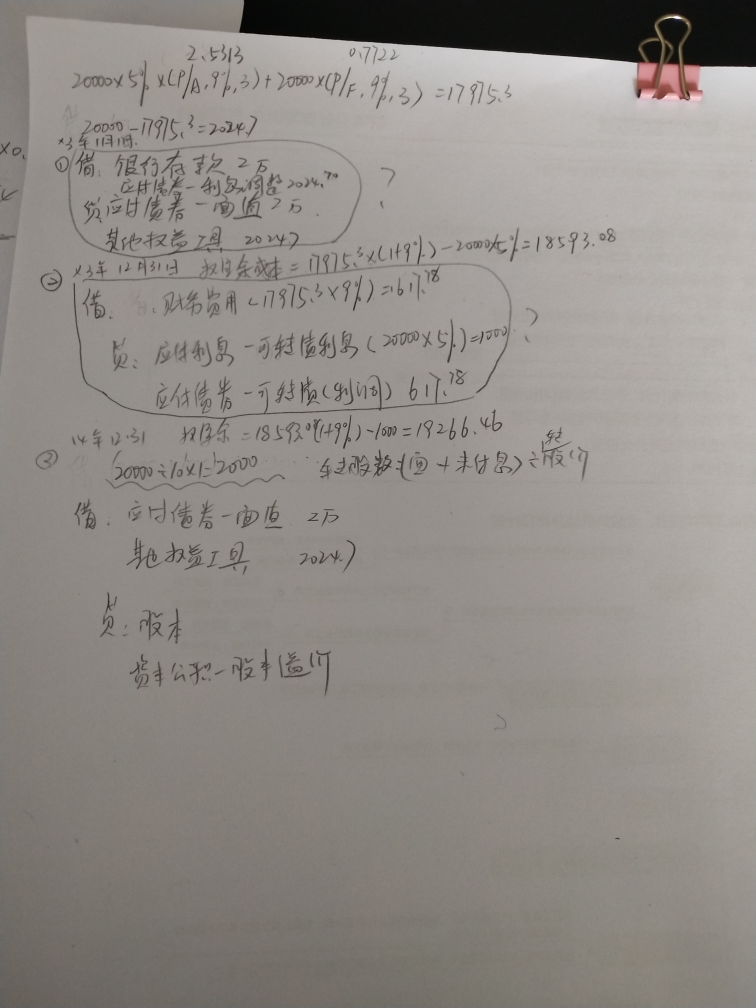 2.5313 0.7722
20000×5%×(P/A,9%,3)+20000×(P/F,9%,3)=17975.3
20000-17975.3=2024.7
×3年1月1日.
①借:银行存款 2万
应付债券-利息调整 2024.70
贷:应付债券-面值 2万.
其他权益工具 2024.7
?
② ×3年12月31日 摊余成本=17975.3×(1+9%)-20000×5%=18593.08
借: 财务费用(17975.3×9%)=1617.78
贷:应付利息-可转债利息(20000×5%)=1000
?
应付债券-可转债(利调) 617.78
14年12.31 摊余=18593.08(1+9%)-1000=19266.46
③ 20000÷10×1=2000 转股数=(面+未付息)÷转股价
借:应付债券-面值 2万
其他权益工具 2024.7
贷:股本
资本公积-股本溢价